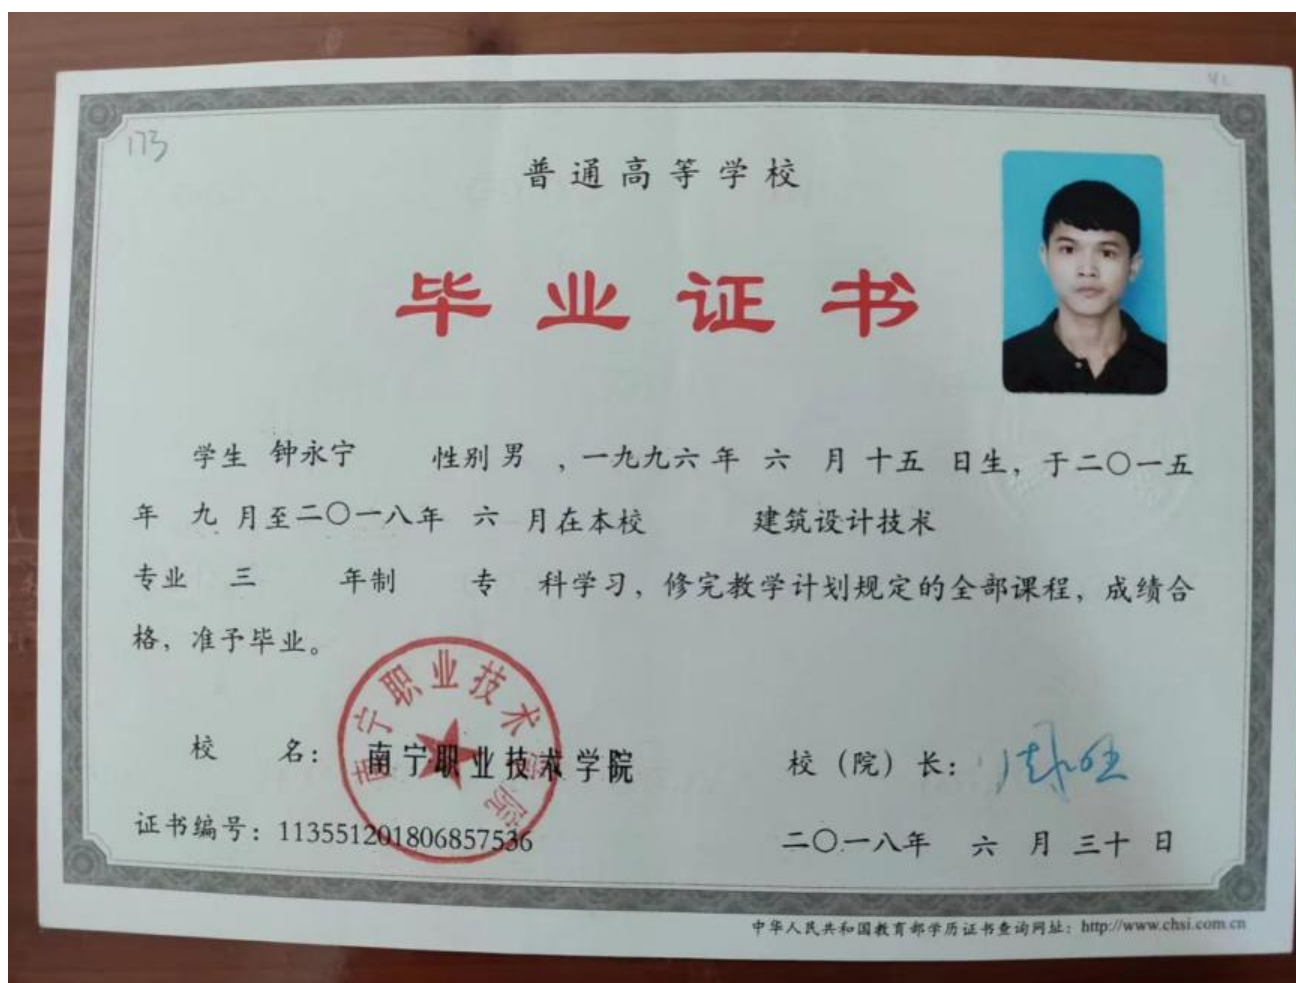 173
普通高等学校
毕业证书
学生 钟永宁 性别 男 ，一九九六 年 六 月 十五 日生，于二〇一五
年 九 月至二〇一八年 六 月在本校 建筑设计技术
专业 三 年制 专 科学习，修完教学计划规定的全部课程，成绩合
格，准予毕业。
南宁职业技术学院
校 名： 南宁职业技术学院 校（院）长：
证书编号：113551201806857536 二〇一八年 六 月 三十 日
中华人民共和国教育部学历证书查询网址：http://www.chsi.com.cn